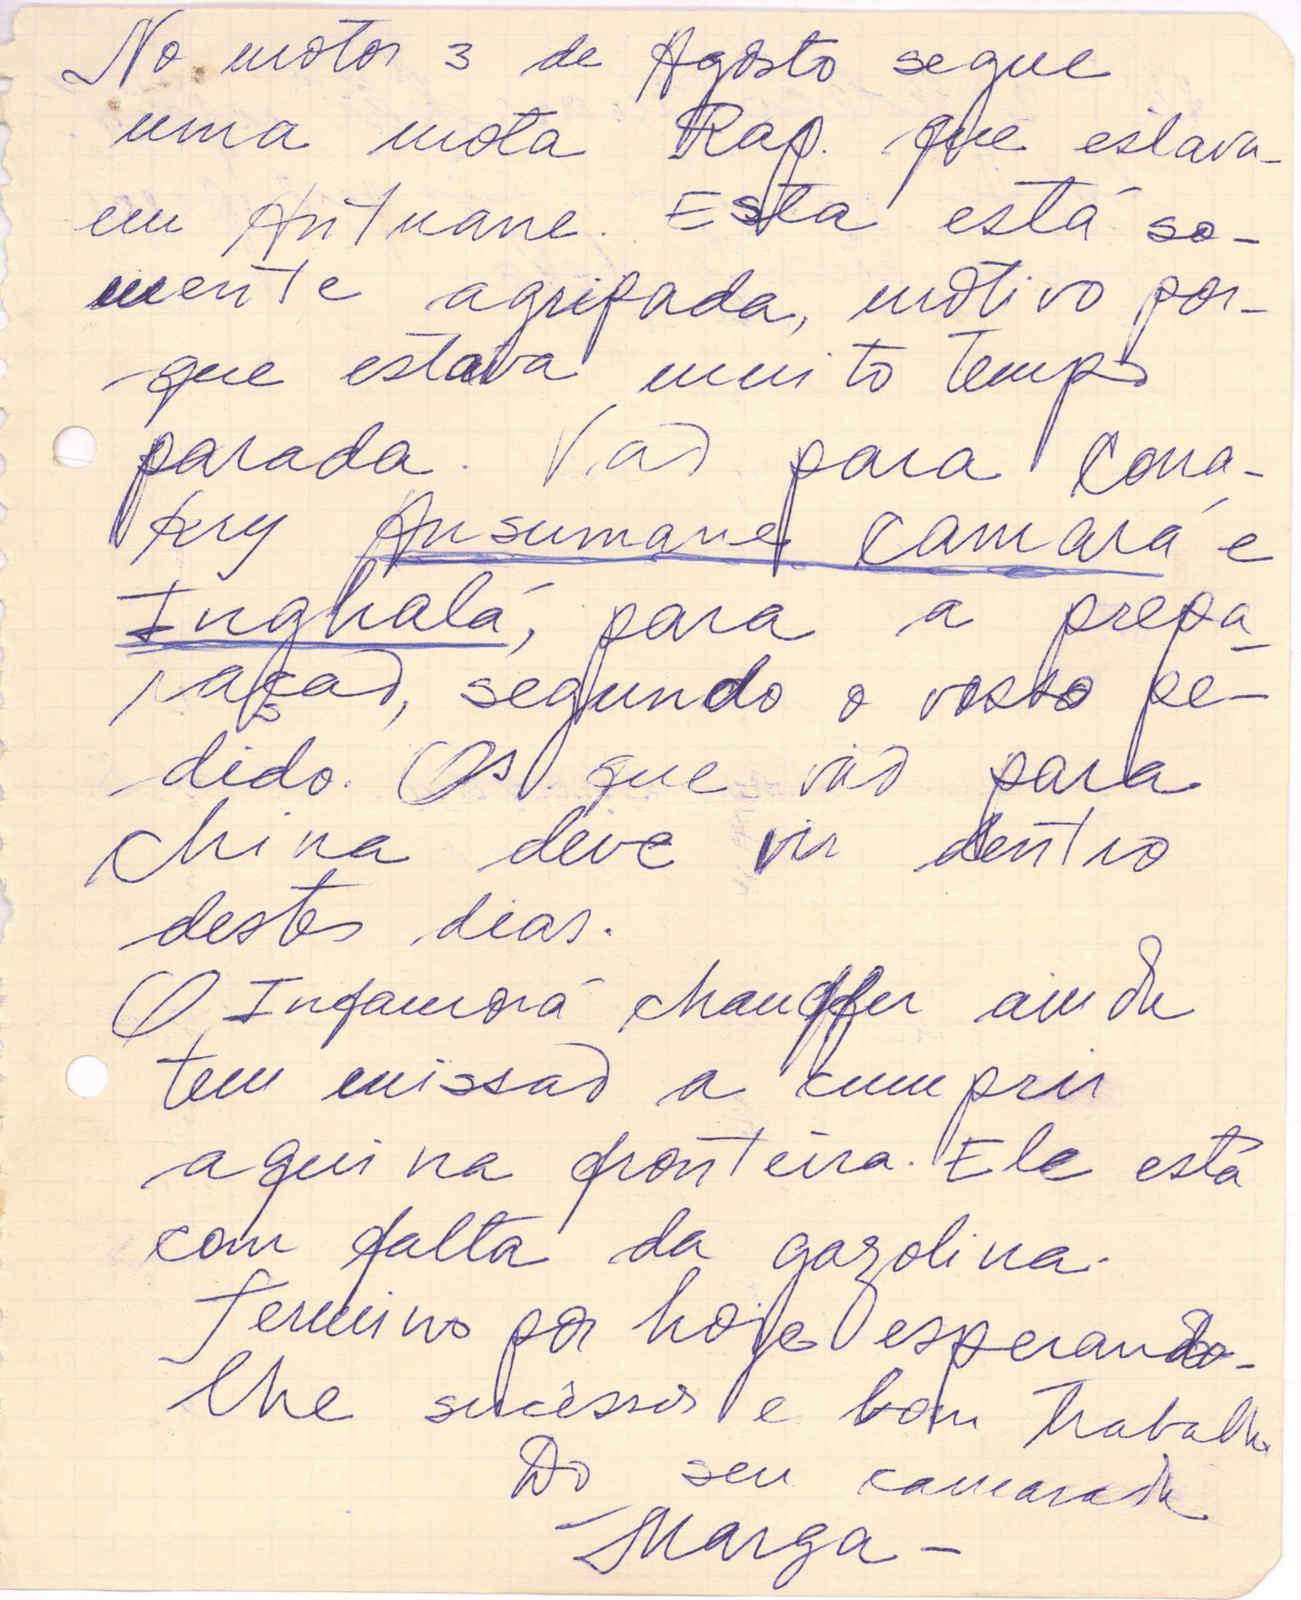 No motor 3 de Agosto segue
uma mota Rap. que estava
em Antuane. Esta está so-
mente agripada, motivo por-
que estava muito tempo
parada. Vão para Cona-
kry Ansumane Camará e
Inghalá, para a prepa-
ração, segundo o vosso pe-
dido. Os que vão para
China deve vir dentro
destes dias.
O Infamorá chauffer ainda
tem missão a cumprir
aqui na fronteira. Ele está
com falta da gazolina.
Termino por hoje esperando-
lhe sucessos e bom trabalho
Do seu camarada
Marga -